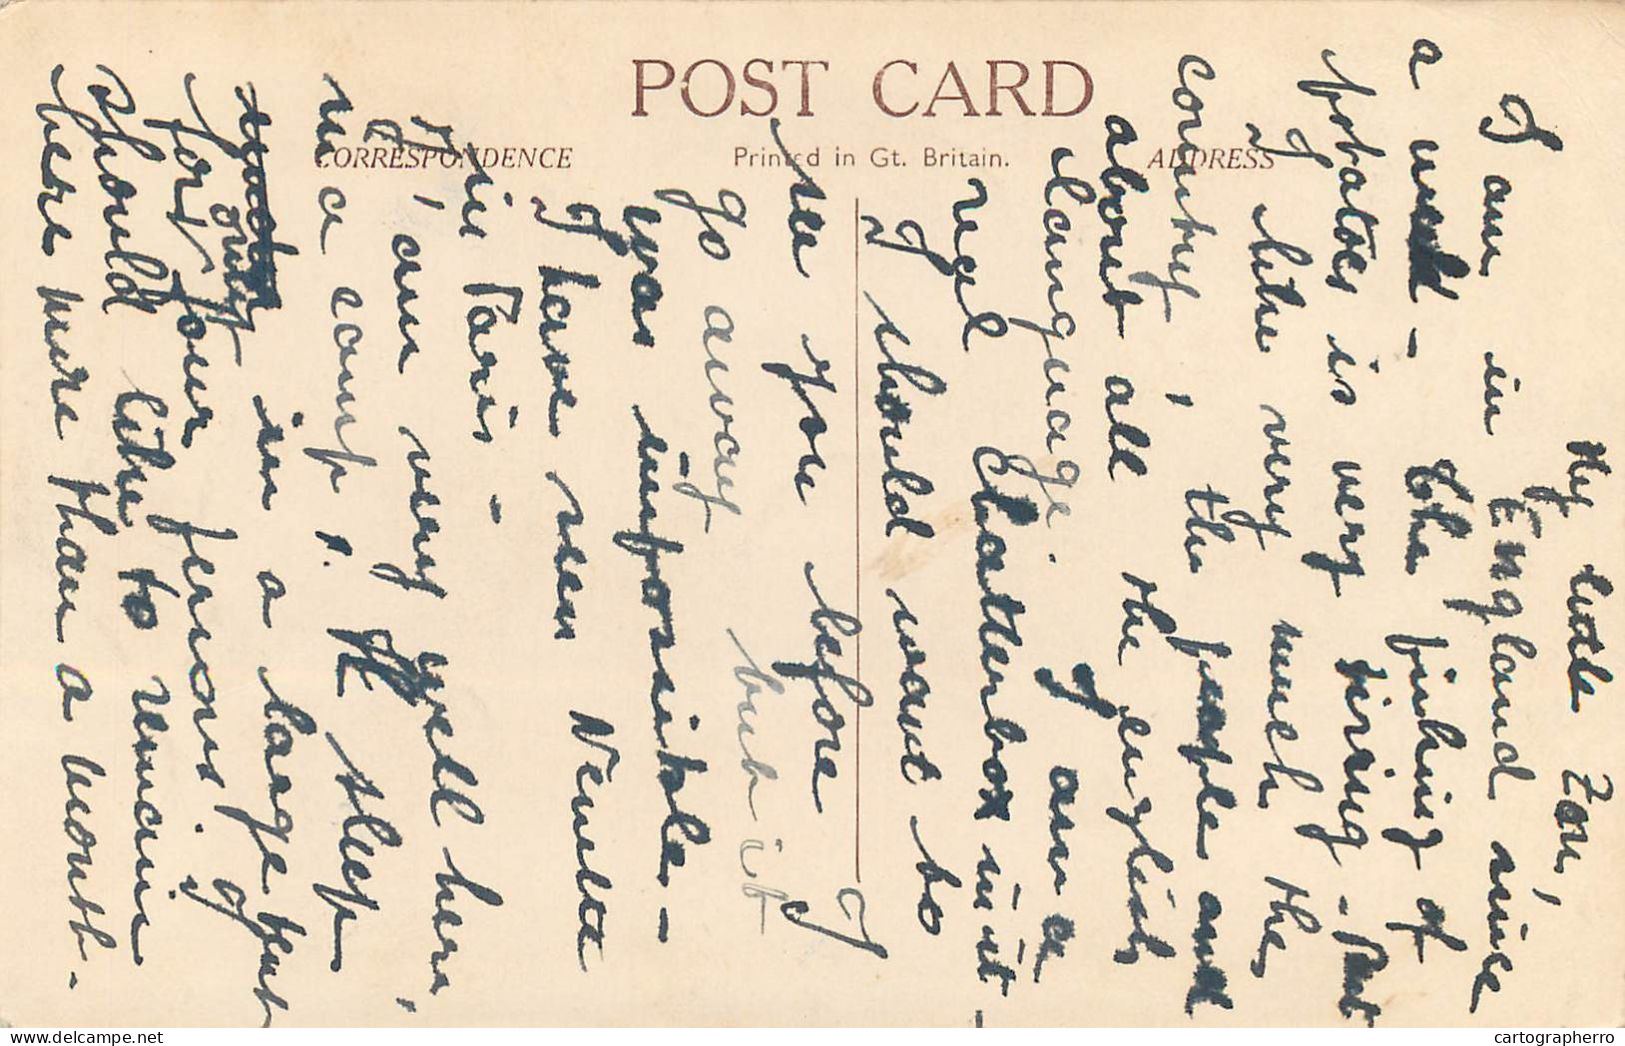 POST CARD
CORRESPONDENCE
Printed in Gt. Britain.
ADDRESS
My little Zon,
I am in England since
a week - The fishing of
potatoes is very tiring - But
I like very much the
country, the people and
about all the english
language. I am a
real chatterbox in it -
I should want to
see you before I
go away but it
was impossible -
I have seen Venette
in Paris -
I am very well here,
in a camp. I sleep
in a large tent
only
for four persons. I
should like to remain
here more than a month.
cartographerro